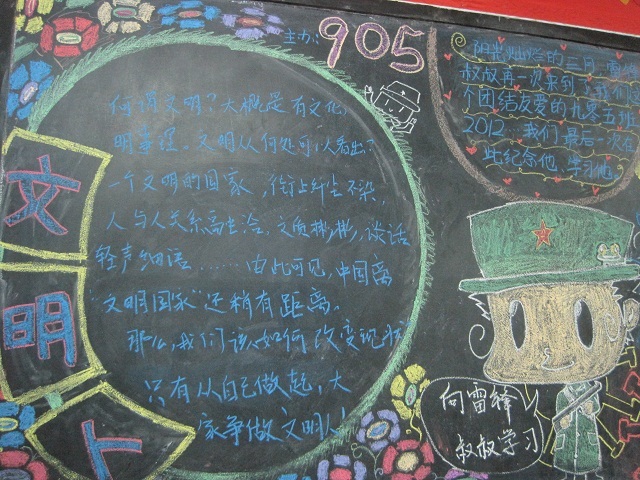 主办: 905
何谓文明？大概是有文化，
明事理。文明从何处可以看出？
一个文明的国家，街上纤尘不染，
人与人关系高生洽，文质彬彬，谈话
轻声细语……由此可见，中国离
“文明国家”还稍有距离。
那么，我们该如何改变现状
只有从自己做起，大
家争做文明人！
文
明
上
阳光灿烂的三月，雷锋
叔叔再一次来到了我们
个团结友爱的九零五班
2012…我们最后一次在
此纪念他、学习他。
向雷锋
叔叔学习